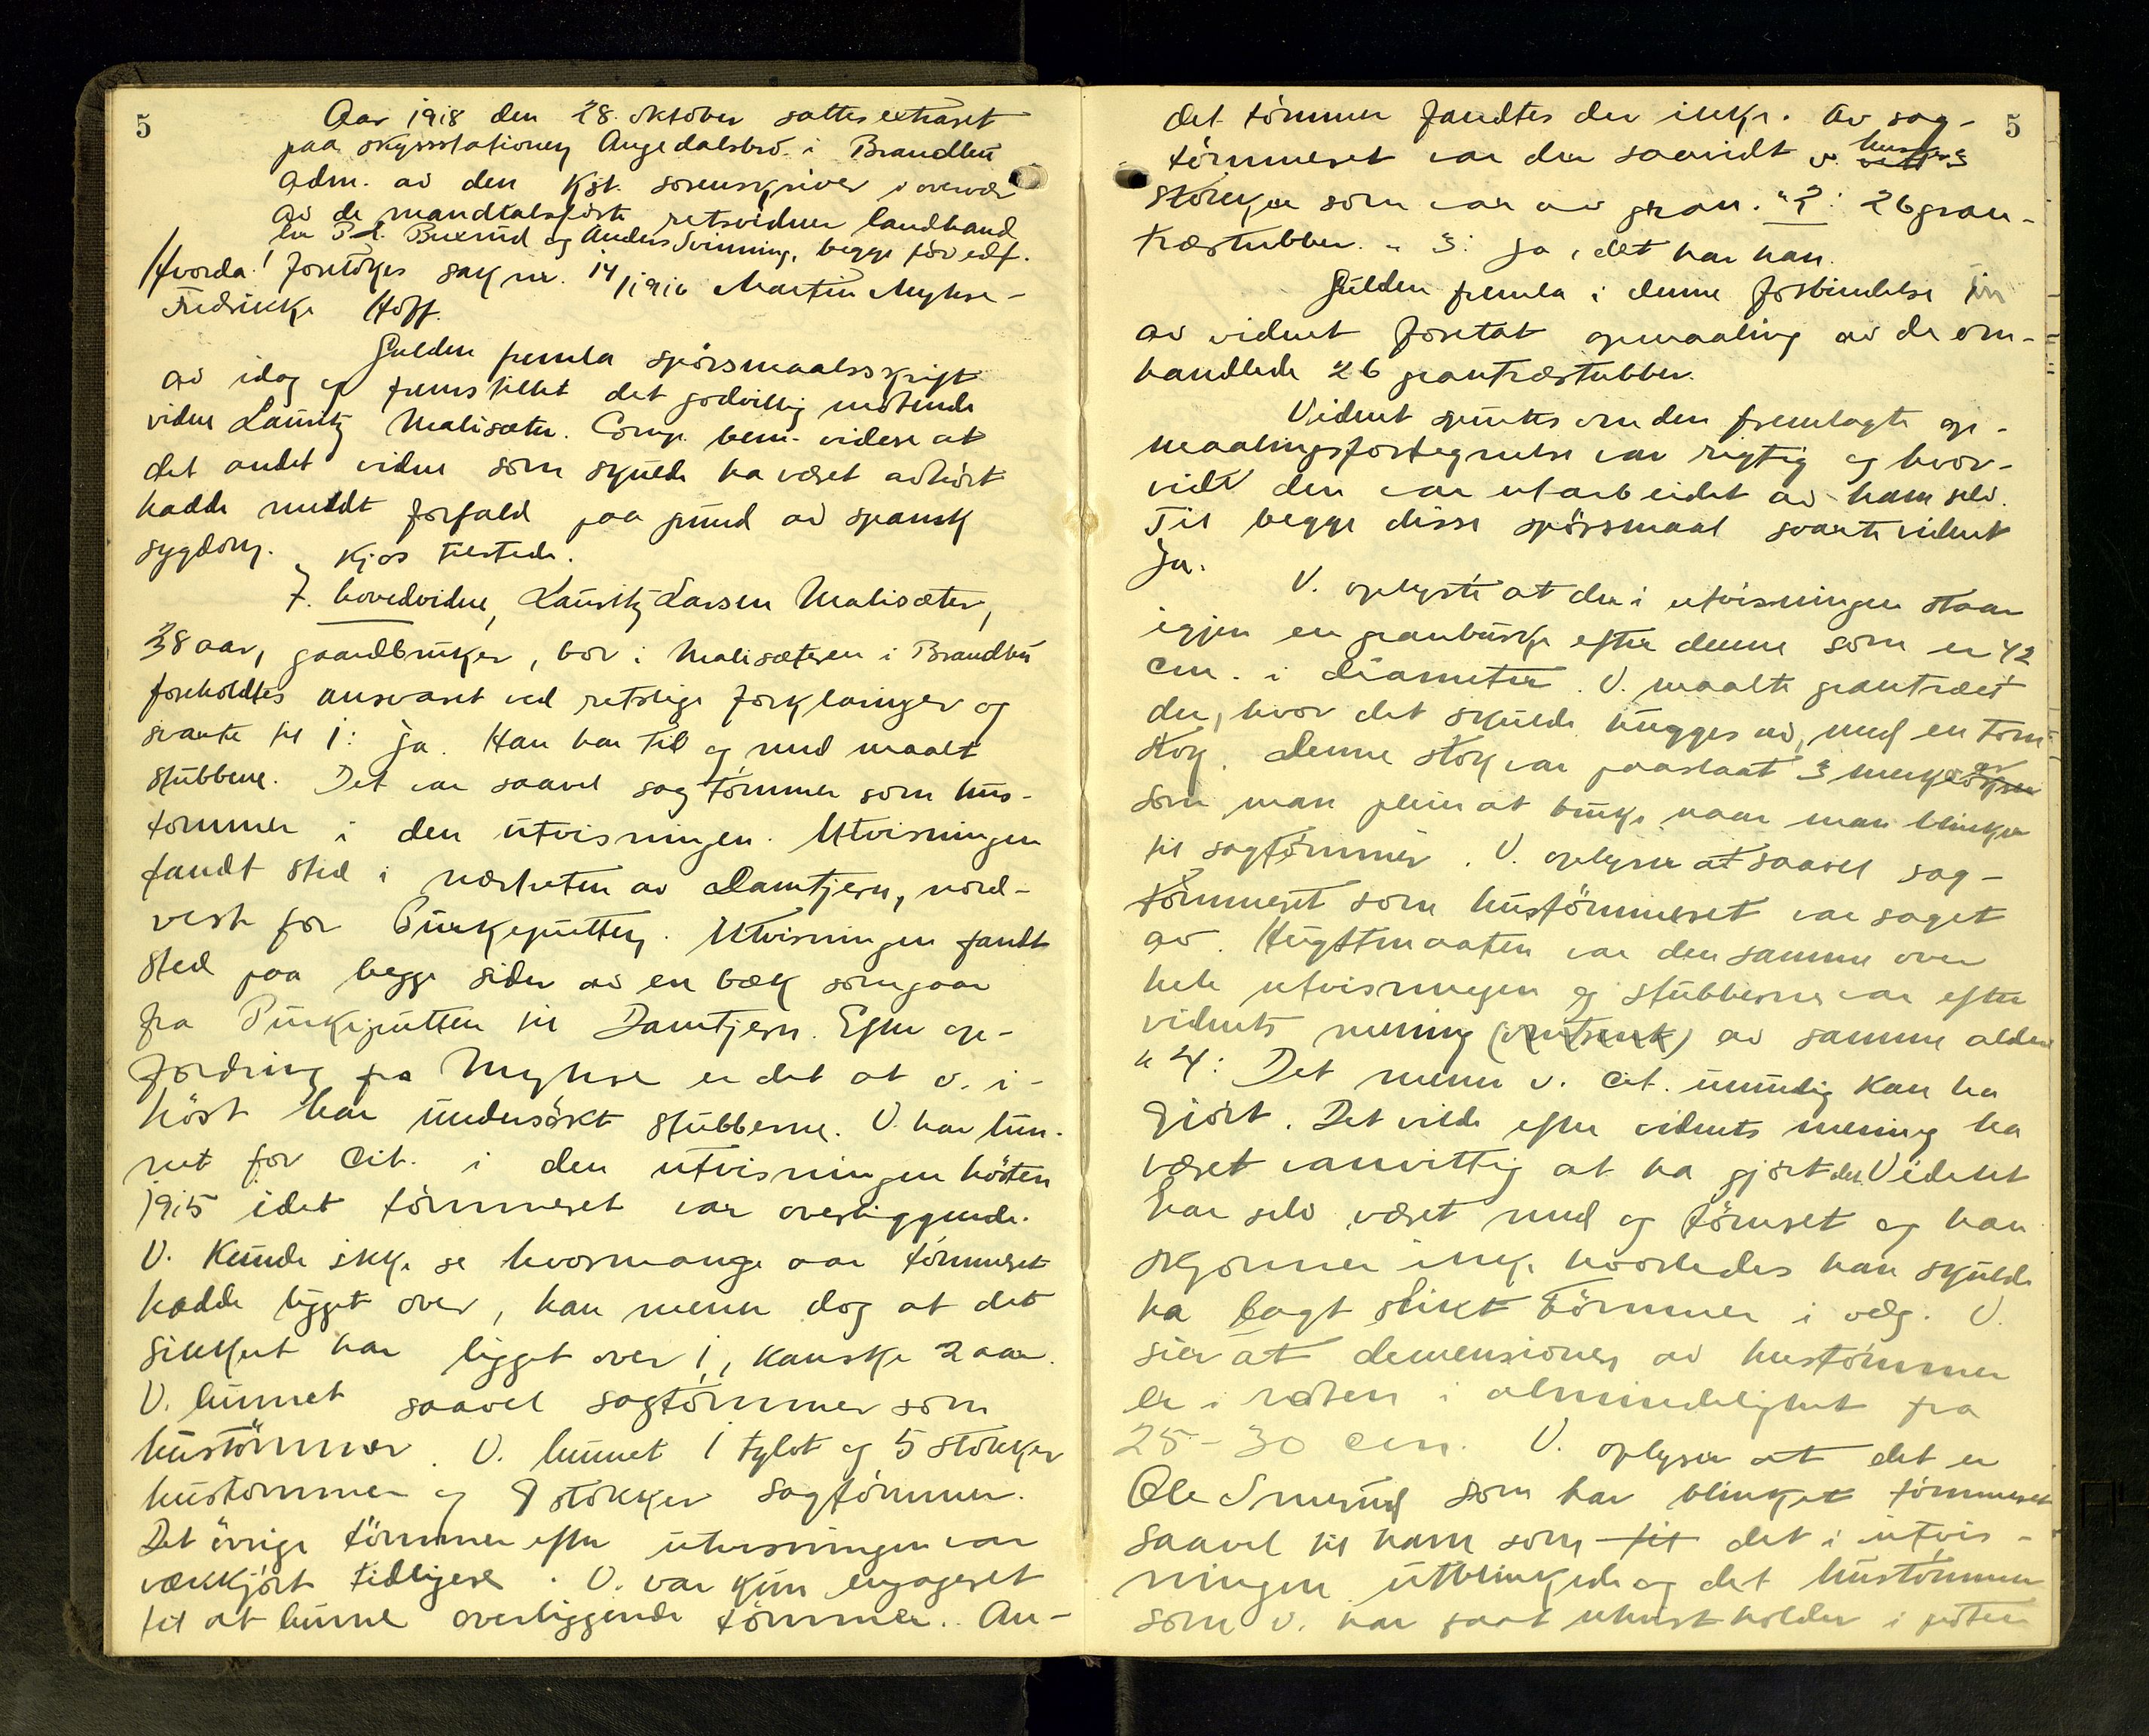 5
Aar 1918 den 28. oktober sattes extraret
paa skysstationen Augedalsbro i Brandbu
adm. av den kst. sorenskriver i overvær
av de mandtalsførte retsvidner landhand
ler P. L. Buxrud og Anders Svinning, begge før edf.
Hvorda! foretokes sak nr. 14/1916 Martin Myhre -
Fredrikke Hoff.
Gulden fremla spørsmaalsskrift
av idag og fremstillet det godvillig møtende
vidne Lauritz Malisæter. Comp. bem. videre at
det andet vidne som skulde ha været avhørt
hadde meldt forfald paa grund av spansk
sygdom. Kjos tilstede.
7. hovedvidne, Lauritz Larsen Malisæter,
38 aar, gaardbruker, bor i Malisæteren i Brandbu
foreholdtes ansvaret ved retslige forklaringer og
svarte til 1: Ja. Han har til og med maalt
stubbene. Det var saavel sagtømmer som hus-
tømmer i den utvisningen. Utvisningen
fandt sted i nærheten av Damtjern, nord-
vest for Purkeputten. Utvisningen fandt
sted paa begge sider av en bæk som gaar
fra Purkeputten til Damtjern. Efter op-
fordring fra Myhre er det at v. i-
høst har undersøkt stubberne. V. har lun-
net for cit. i den utvisningen høsten
1915 idet tømmeret var overliggende.
V. kunde ikke se hvormange aar tømmeret
hadde ligget over, han mener dog at det
sikkert har ligget over 1, kanske 2 aar.
V. lunnet saavel sagtømmer som
hustømmer. V. lunnet 1 tylvt og 5 stokker
hustømmer og 9 stokker sagtømmer.
Det øvrige tømmer efter utvisningen var
vækkjørt tidligere. V. var kun engageret
til at lunne overliggende tømmer. An-
5
det tømmer fandtes der ikke. Av sag-
tømmeret var der saavidt v. husker 3
stokker som var av gran. "2: 26 gran-
træstubber. " 3: Ja, det har han.
Gulden fremla i denne forbindelse en
av vidnet foretat opmaaling av de om-
handlede 26 grantræstubber.
Vidnet spurtes om den fremlagte op-
maalingsfortegnelse var rigtig og hvor-
vidt den var utarbeidet av ham selv.
Til begge disse spørsmaal svarte vidnet
Ja.
V. oplyste at der i utvisningen staar
igjen en granbuske efter denne som er 42
cm. i diameter. V. maalte grantræet
der, hvor det skulde hugges av, med en tom-
stok. Denne stok var paaslaat 3 merker av
som man pleier at bruke naar man blinker
til sagtømmer. V. oplyser at saavel sag-
tømmeret som hustømmeret var saget
av. Hugstmaaten var den samme over
hele utvisningen og stubberne var efter
vidnets mening av samme alder
" 4: Det mener v. cit. umulig kan ha
gjort. Det vilde efter vidnets mening ha
været vanvittig at ha gjort det. Vidnet
har selv været med og tømret og han
skjønner ikke hvorledes han skulde
ha lagt slikt tømmer i væg. V.
sier at demensionen av hustømmer
er i roten i almindelighet fra
25 - 30 cm. V. oplyser at det er
Ole Smerud som har blinket tømmeret
saavel til ham som til det i utvis-
ningen utblinkede og det hustømmer
som v. har faat utvist holder i roten